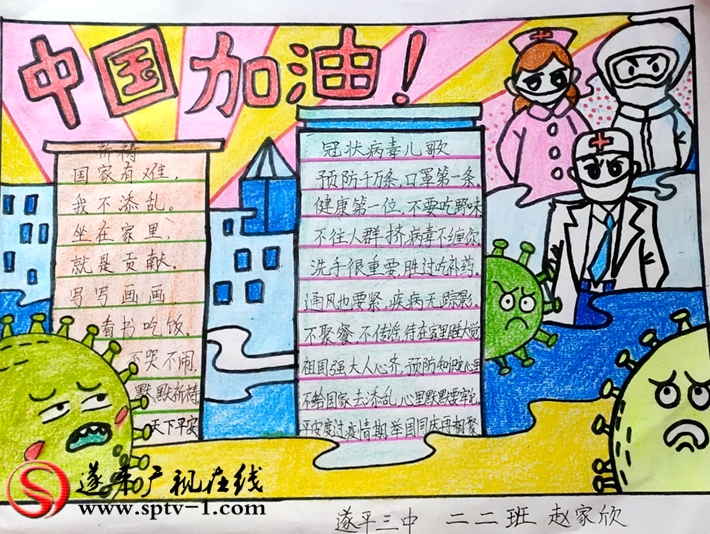 中国加油！
祈祷
国家有难，
我不添乱。
坐在家里，
就是贡献。
写写画画
看书吃饭，
不哭不闹，
默默祈祷
天下平安
冠状病毒儿歌
预防千万条，口罩第一条，
健康第一位，不要吃野味
不住人群挤，病毒不缠你
洗手很重要，胜过吃补药。
通风也要紧，疾病无踪影。
不聚餐，不传谣，待在家里睡大觉
祖国强大人心齐，预防知识记心里
不给国家去添乱，心里默默要牢记
平安度过疫情期，举国同庆再相聚
遂平广视在线
www.sptv-1.com
遂平三中 二二班 赵家欣